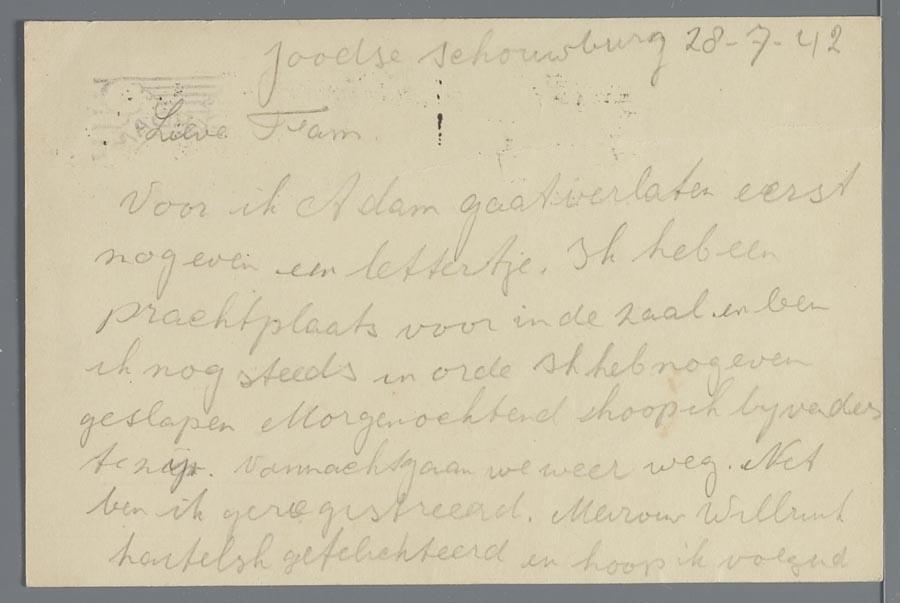 Joodse schouwburg 28-7-42
Lieve Fam.
Voor ik A dam gaat verlaten eerst
nog even een lettertje. Ik heb een
prachtplaats voor in de zaal en ben
ik nog steeds in orde Ik heb nog even
geslapen Morgenochtend hoop ik bij vaders
te zijn. Vannacht gaan we weer weg. Net
ben ik geregistreerd. Mevrouw
hartelijk gefeliciteerd en hoop ik volgend